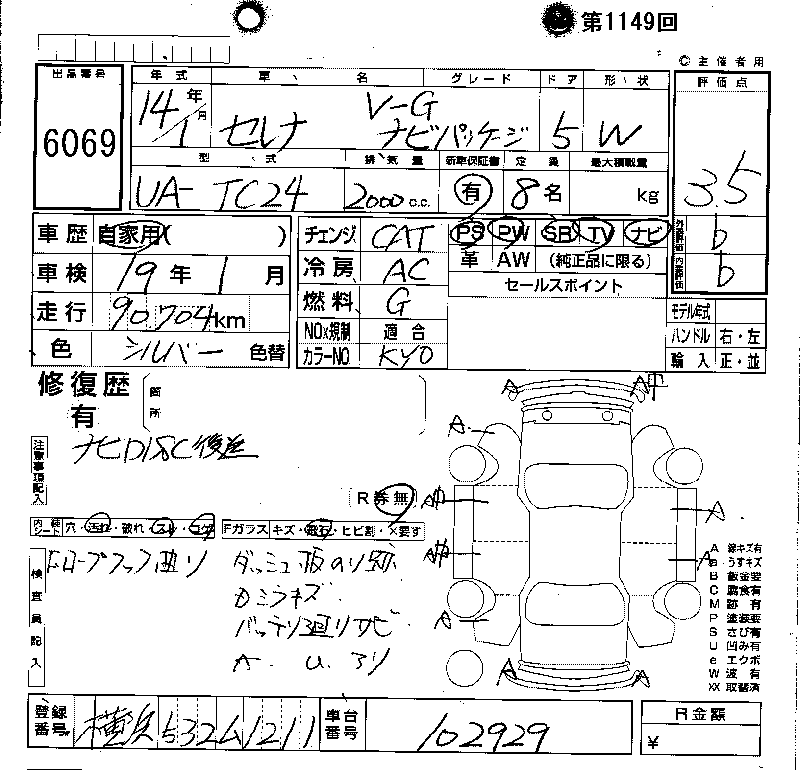 第1149回
© 主催者用
出品番号 年式 車名 グレード ドア 形状 評価点
6069 14年 1月 セレナ V-G ナビパッケージ 5 W 3.5
型式 排気量 新車保証書 定員 最大積載量
UA- TC24 2000 c.c. 有 8名 kg
車歴 自家用( ) チェンジ CAT PS PW SR TV ナビ 外装評価 b
車検 19年 1月 冷房 AC 革 AW (純正品に限る) 内装評価 b
セールスポイント
走行 90,704km 燃料 G モデル年式
NOx規制 適合 ハンドル 右・左
色 シルバー 色替 カラーNO KYO 輸入 正・並
修復歴 箇所
有
注意事項記入 ナビDISC後送
R券無
内装シート 穴・汚れ・破れ・スレ・コゲ Fガラス キズ・飛石・ヒビ割・×要す
検査員記入 Fロープフック曲り ダッシュ板のり跡
Dミラキズ
バッテリ廻りサビ
A. U. アリ
A A
A A
A
A
A A
A A
A 線キズ有
a うすキズ
B 鈑金要
C 腐食有
M 跡有
P 塗装要
S さび有
U 凹み有
e エクボ
W 波有
XX 取替済
登録番号 横浜532ム1211 車台番号 102929 R金額
¥